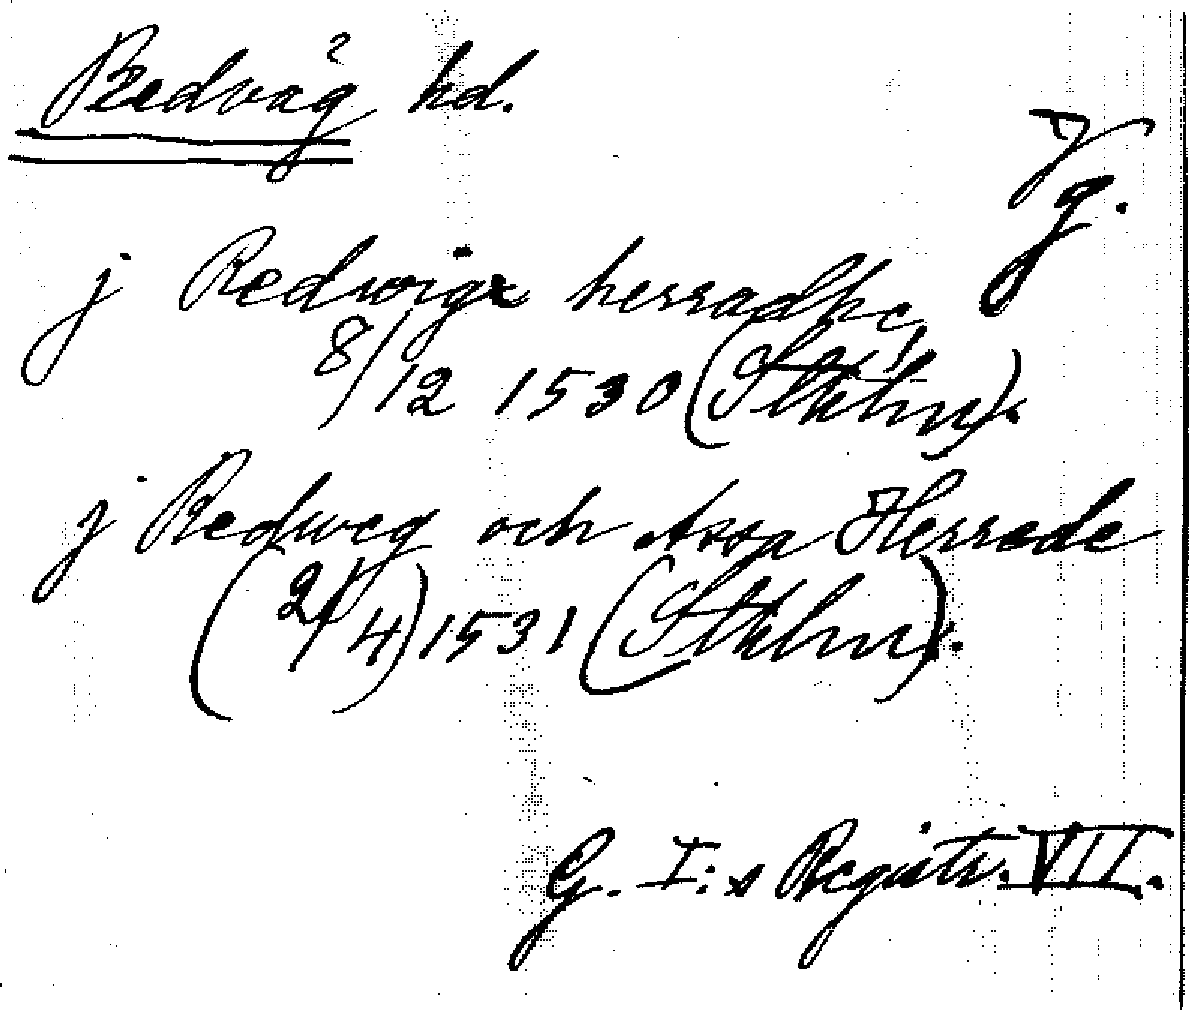 Redväg hd.
Vg.
j Redwigx herradhe,
8/12 1530 (Sthlm).
j Redweg och Assa Herrede
(2/4) 1531 (Sthlm).
G. I:s Registr. VII.